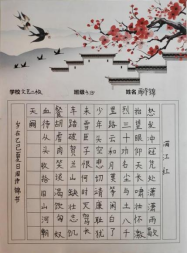 学校
班级
姓名
满江红
怒发冲冠凭栏处潇潇雨歇
抬望眼仰天长啸壮怀激
烈三十功名尘与土八千
里路云和月莫等闲白了
少年头空悲切靖康耻犹
未雪臣子恨何时灭驾长
车踏破贺兰山缺壮志饥
餐胡虏肉笑谈渴饮匈奴
血待从头收拾旧山河朝
天阙
岁在乙巳夏日